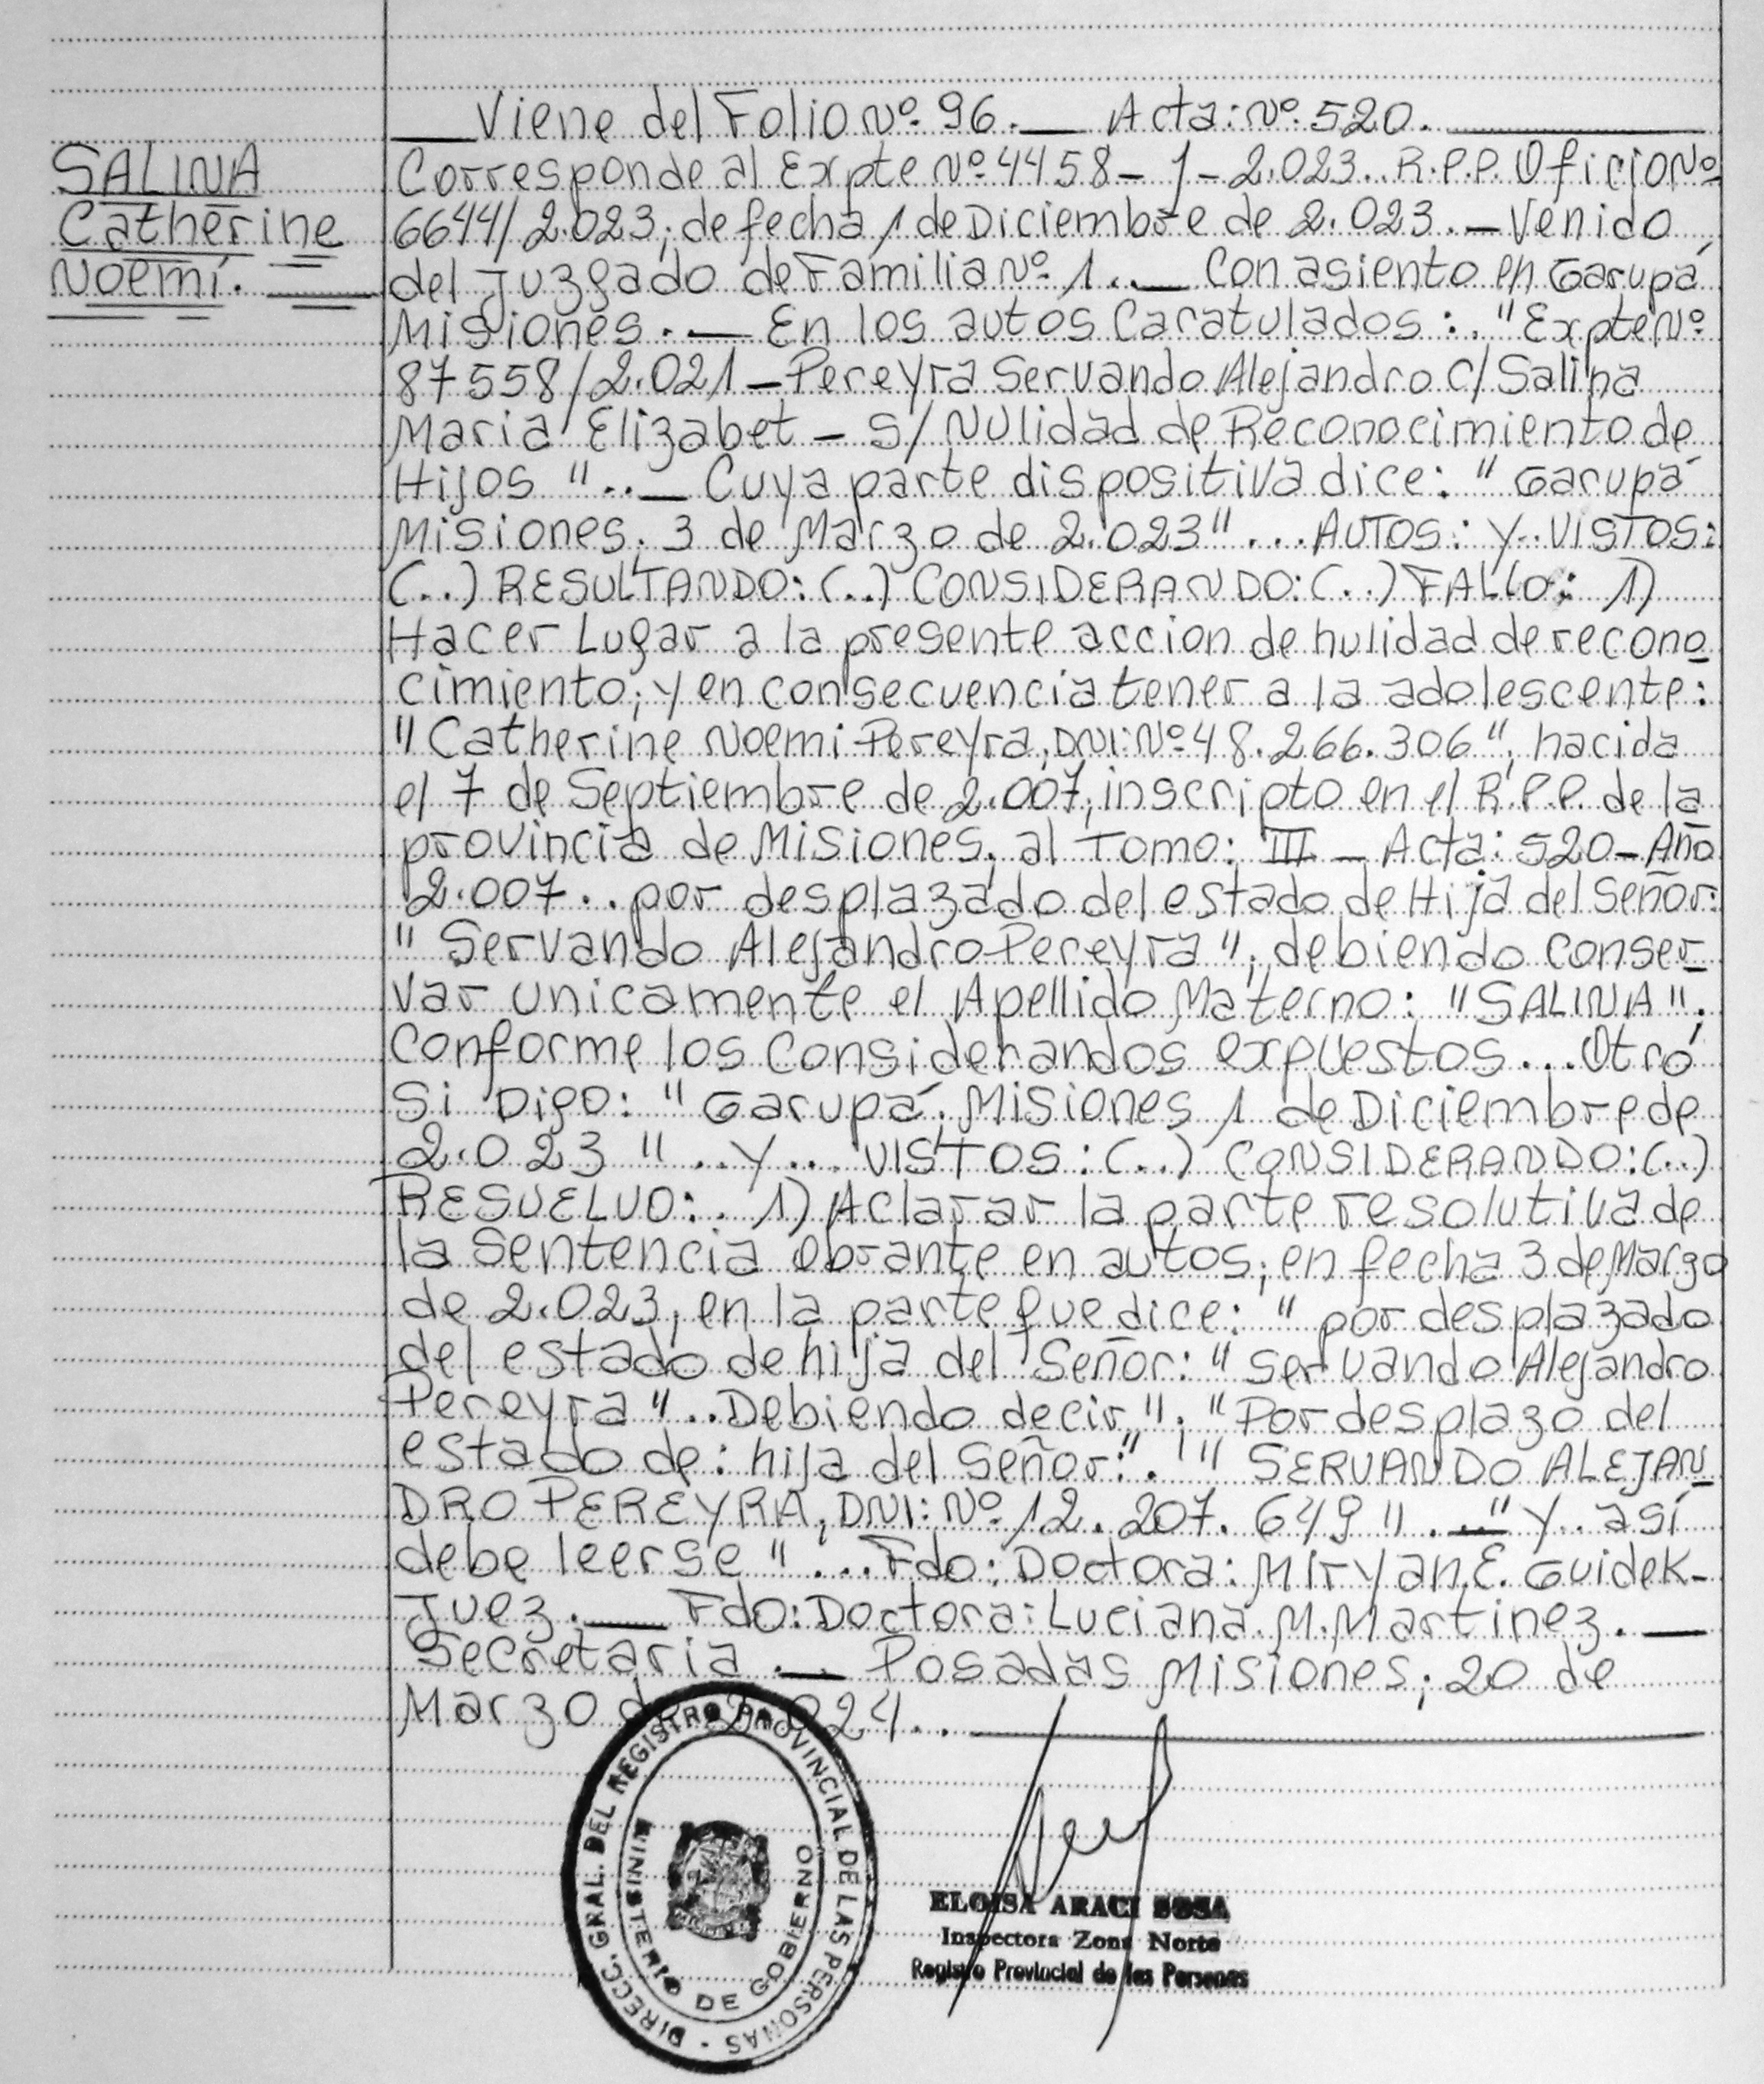 Viene del Folio Nº 96.— Acta: Nº 520.
SALINA
Catherine
Noemí.
Corresponde al Expte Nº 4458-1-2.023.. R.P.P. Oficio Nº
6644/2.023, de fecha 1 de Diciembre de 2.023.- Venido
del Juzgado de Familia Nº 1..— Con asiento en Garupá
Misiones.— En los autos Caratulados: "Expte Nº
87558/2.021-Pereyra Servando Alejandro C/Salina
Maria Elizabet - S/Nulidad de Reconocimiento de
Hijos "..— Cuya parte dispositiva dice: "Garupá
Misiones, 3 de Marzo de 2.023"... AUTOS: Y.. VISTOS:
(..) RESULTANDO: (..) CONSIDERANDO: (..) FALLO: 1)
Hacer Lugar a la presente accion de nulidad de recono
cimiento; y en consecuencia tener a la adolescente:
"Catherine Noemi Pereyra, DNI: Nº 48.266.306", nacida
el 7 de Septiembre de 2.007, inscripto en el R.P.P. de la
provincia de Misiones, al Tomo: III - Acta: 520 - Año
2.007.. por desplazado del estado de Hija del Señor:
"Servando Alejandro Pereyra"; debiendo conser
var unicamente el Apellido Materno: "SALINA";
Conforme los Considerandos expuestos... Otro
Si Digo: "Garupá, Misiones 1 de Diciembre de
2.023 "..Y... VISTOS: (..) CONSIDERANDO: (..)
RESUELVO:. 1) Aclarar la parte resolutiva de
la Sentencia obrante en autos; en fecha 3 de Marzo
de 2.023, en la parte que dice: "por desplazado
del estado de hija del Señor: "Servando Alejandro
Pereyra"..Debiendo decir": "Por desplazo del
estado de: hija del Señor:". "SERVANDO ALEJAN
DRO PEREYRA, DNI: Nº 12.207.649"..—"Y.. así
debe leerse"... Fdo: Doctora: Miryan.E. Guidek-
Juez.— Fdo: Doctora: Luciana.M.Martinez.—
Secretaria.— Posadas Misiones; 20 de
Marzo de 2024..
DIRECC. GRAL. DEL REGISTRO PROVINCIAL DE LAS PERSONAS -
MINISTERIO DE GOBIERNO
ELOISA ARACI SOSA
Inspectora Zona Norte
Registro Provincial de las Personas